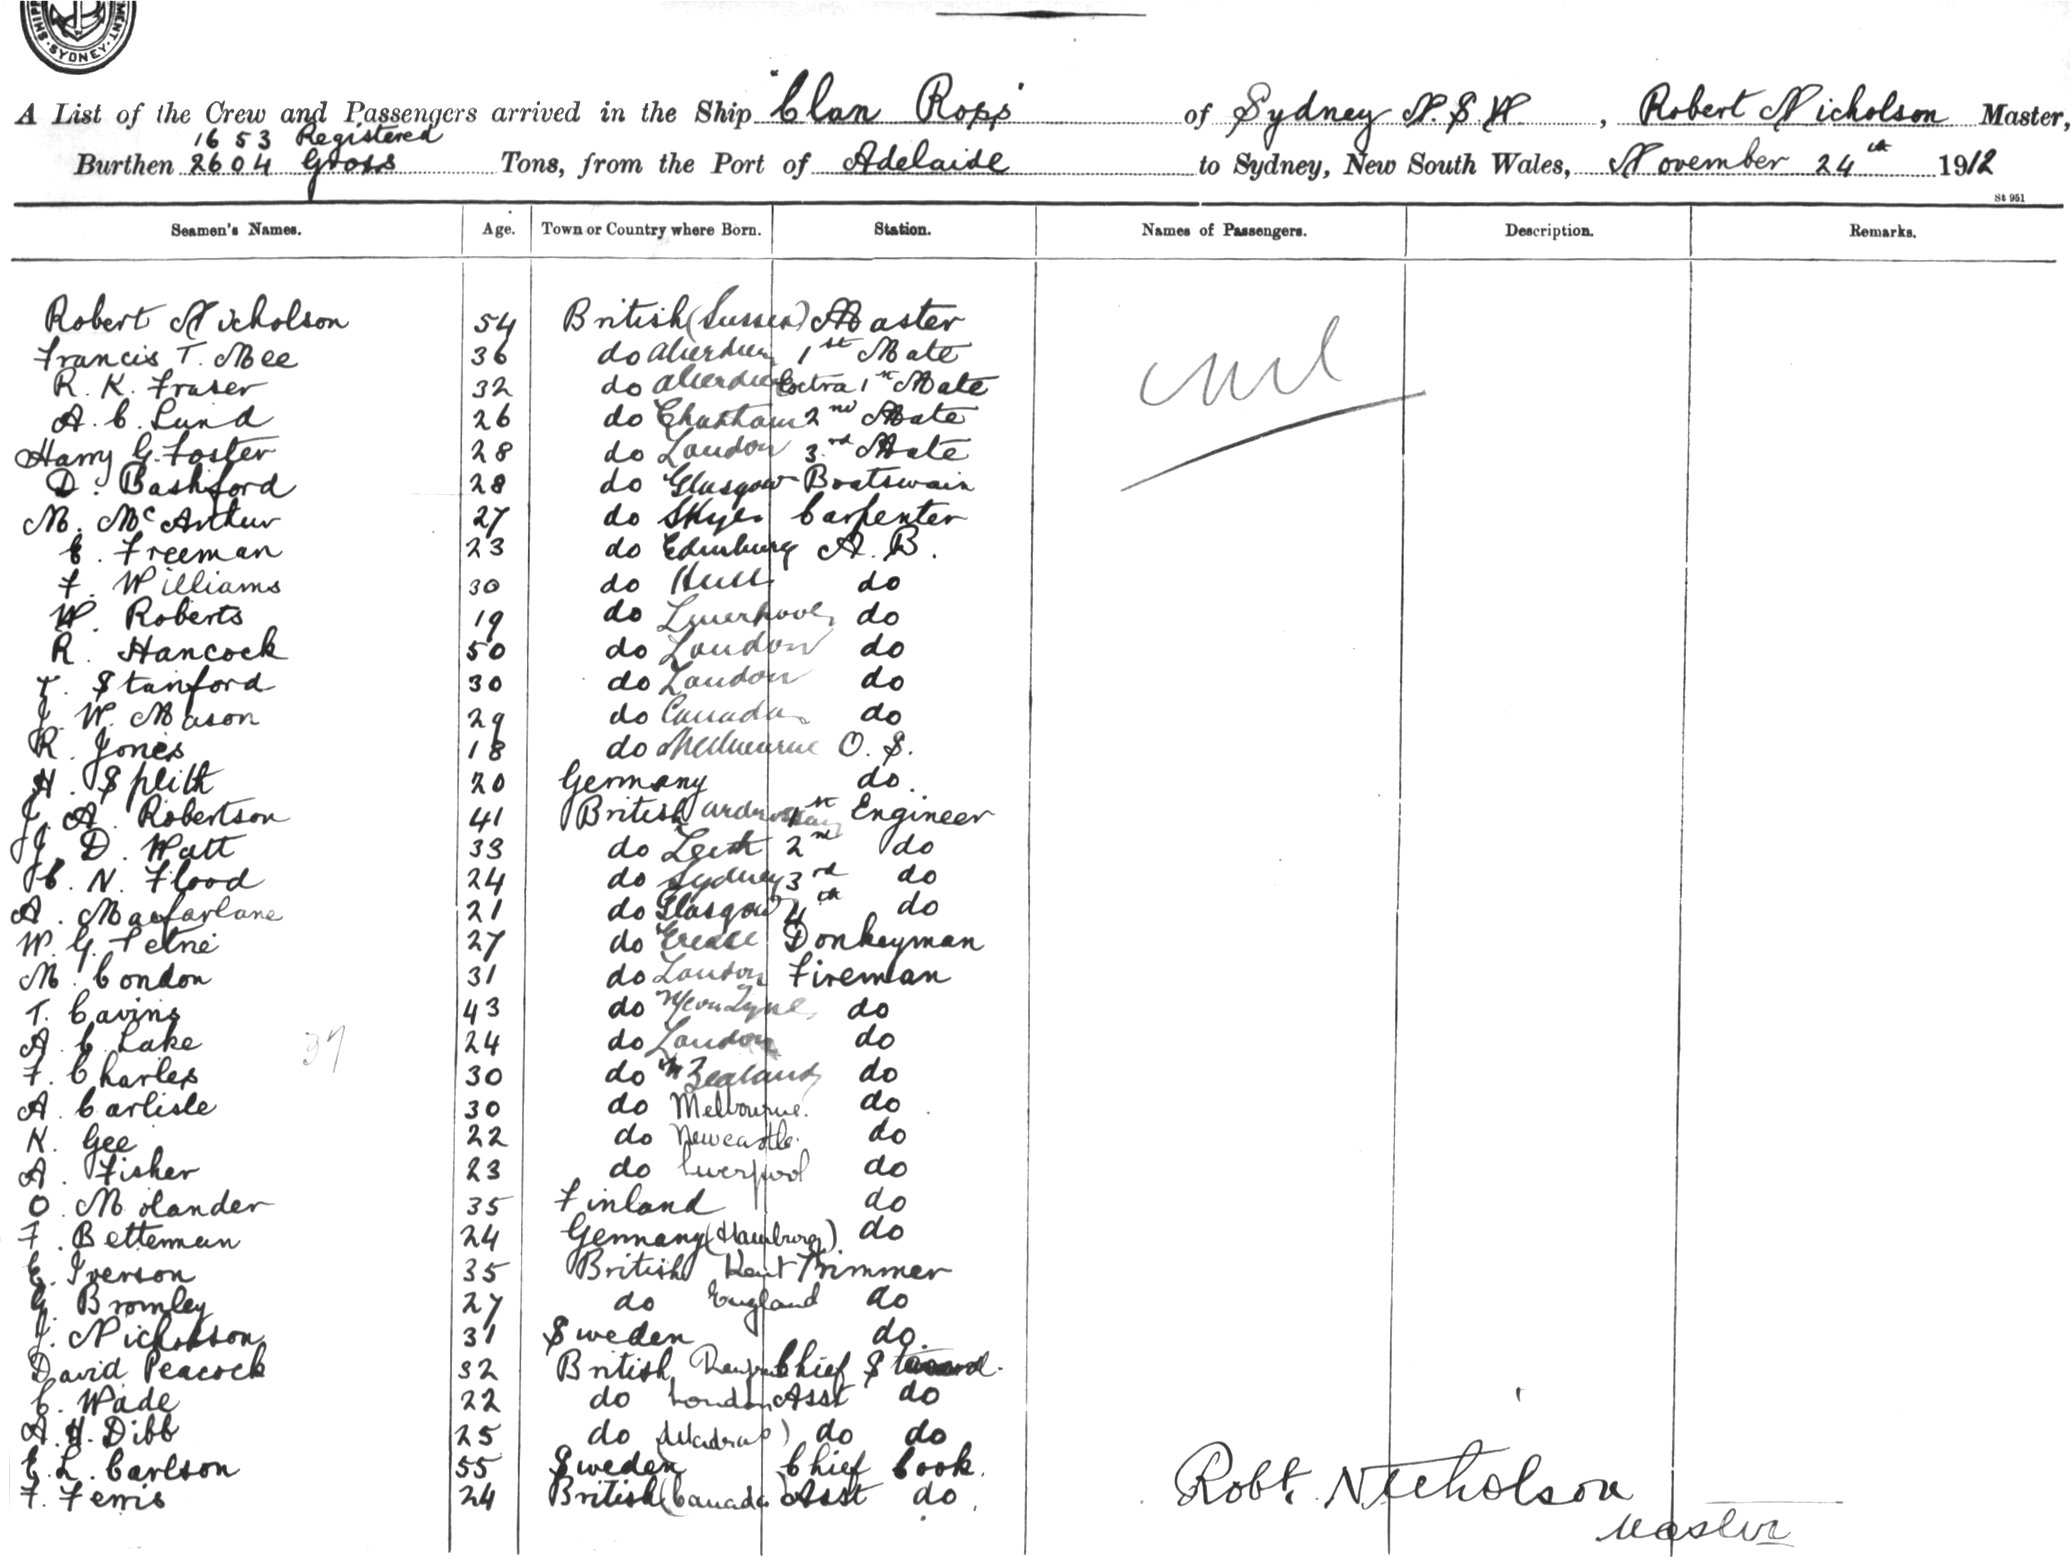 SYDNEY
A List of the Crew and Passengers arrived in the Ship "Clan Ross" of Sydney N.S.W, Robert Nicholson Master,
1653 Registered
Burthen 2604 Gross Tons, from the Port of Adelaide to Sydney, New South Wales, November 24th 1912
St 951
Seamen's Names. Age. Town or Country where Born. Station. Names of Passengers. Description. Remarks.
Robert Nicholson 54 British (Sussex) Master
nil
Francis T. Mee 36 do Aberdeen 1st Mate
R. K. Fraser 32 do Aberdeen Extra 1st Mate
A. C. Lund 26 do Chatham 2nd Mate
Harry G. Foster 28 do London 3rd Mate
D. Bashford 28 do Glasgow Boatswain
M. McArthur 27 do Skye Carpenter
E. Freeman 23 do Edinburg A. B.
F. Williams 30 do Hull do
W. Roberts 19 do Liverpool do
R. Hancock 50 do London do
T. Stanford 30 do London do
J. W. Mason 29 do Canada do
R. Jones 18 do Melbourne O. S.
H. Splith 20 Germany do.
J. A. Robertson 41 British 1st Engineer
J. D. Watt 33 do Leith 2nd do
C. N. Flood 24 do Sydney 3rd do
A. Macfarlane 21 do Glasgow 4th do
W. G. Petrie 27 do Donkeyman
M. Condon 31 do London Fireman
T. Cavins 43 do do
A. C. Lake 37 24 do London do
F. Charles 30 do N Zealand do
A. Carlisle 30 do Melbourne. do
K. Gee 22 do Newcastle. do
A. Fisher 23 do Liverpool do
O. Molander 35 Finland do
F. Betteman 24 Germany (Hamburg). do
E. Iverson 35 British Kent Trimmer
G. Bromley 27 do England do
J. Nicholson 31 Sweden do.
David Peacock 32 British Chief Steward.
C. Wade 22 do London Asst do
A. H. Dibb 25 do (Madras) do do
E. L. Carlson 55 Sweden Chief Cook.
F. Ferris 24 British (Canada) Asst do.
Robt. Nicholson
Master